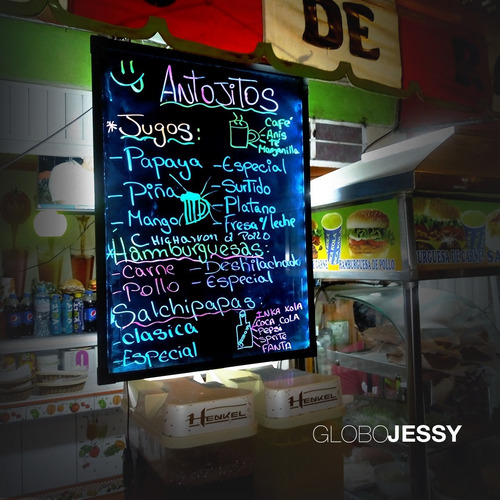 DE
ANTOJITOS
*Jugos:
Café
Anis
Té
Manzanilla
-Papaya -Especial
-Piña -Surtido
-Mango -Platano
-Fresa y leche
Chicharron d Pollo
*Hamburguesas:
-Carne -Deshilachada
-Pollo -Especial
Salchipapas:
clasica
-Especial
INKA KOLA
COCA COLA
PEPSI
SPRITE
FANTA
HAMBURGUESA DE POLLO
HENKEL
HENKEL
GLOBOJESSY